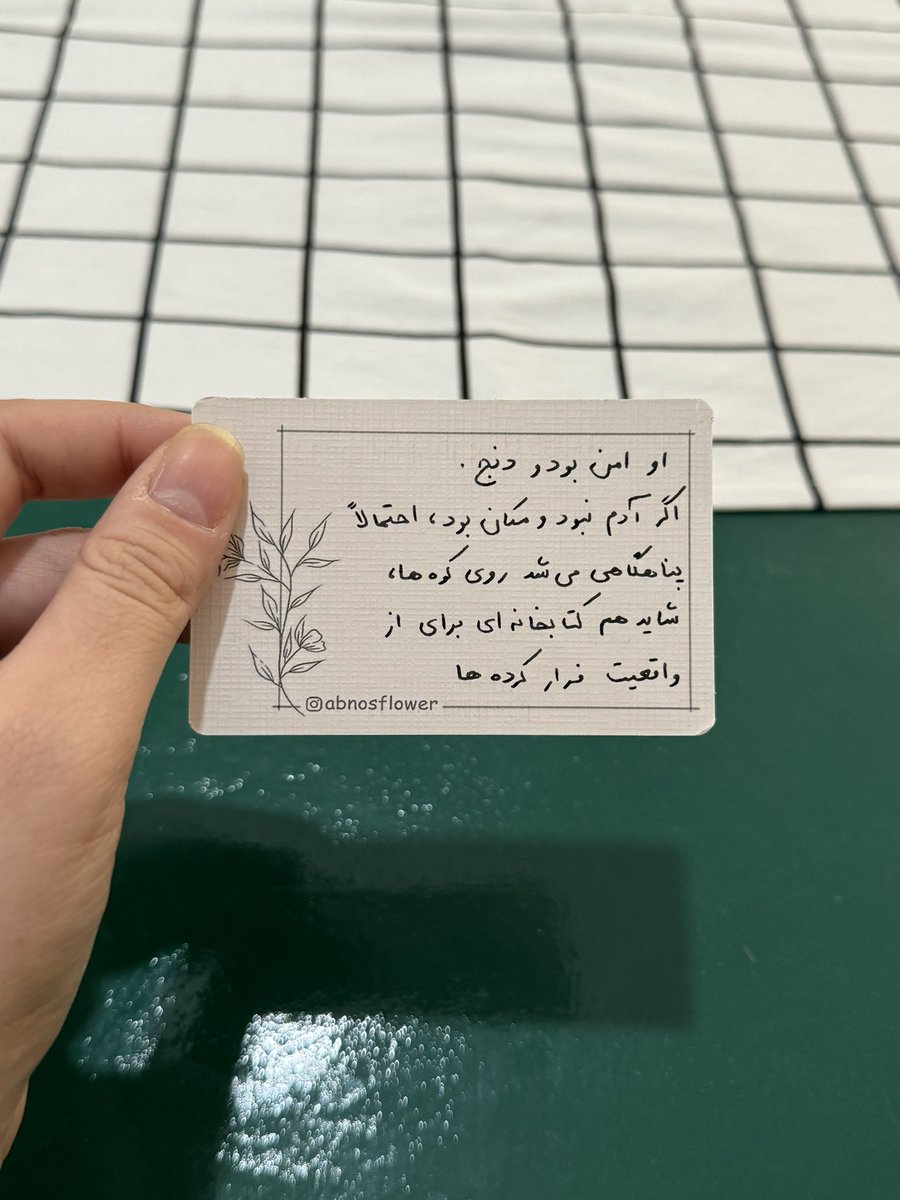 او امن بود و دنج.
اگر آدم نبود و مکان بود، احتمالاً
پناهگاهی می‌شد روی کوه‌ها،
شاید هم کتابخانه‌ای برای از
واقعیت فرار کرده ها
@abnosflower